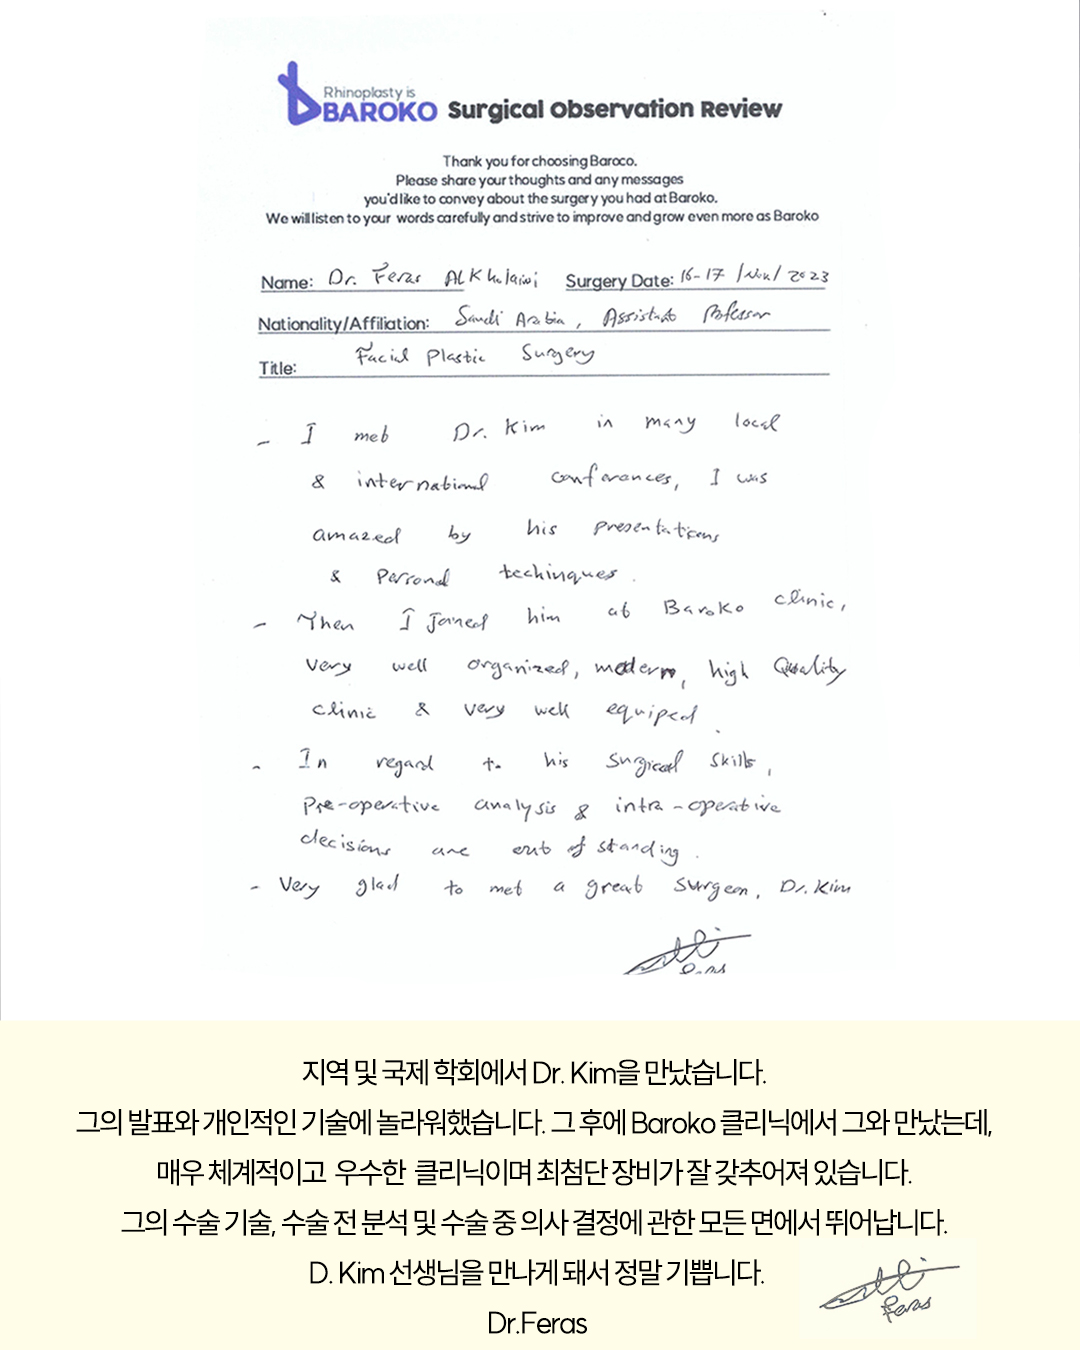 Rhinoplasty is
BAROKO Surgical Observation Review
Thank you for choosing Baroco.
Please share your thoughts and any messages
you'd like to convey about the surgery you had at Baroko.
We will listen to your words carefully and strive to improve and grow even more as Baroko
Name: Dr. Feras ALKhulaiwi Surgery Date: 16-17 /Nov/ 2023
Nationality/Affiliation: Saudi Arabia, Assistant Professor
Title: Facial Plastic Surgery
- I met Dr. Kim in many local
& international conferances, I was
amazed by his presentations
& Personal techinques.
- Then I joined him at Baroko clinic,
very well organized, modern, high Quality
clinic & very well equiped.
- In regard to his surgical skills,
Pre-operative analysis & intra-operative
decisions are out of standing.
- Very glad to met a great surgeon, Dr. Kim
지역 및 국제 학회에서 Dr. Kim을 만났습니다.
그의 발표와 개인적인 기술에 놀라워했습니다. 그 후에 Baroko 클리닉에서 그와 만났는데,
매우 체계적이고 우수한 클리닉이며 최첨단 장비가 잘 갖추어져 있습니다.
그의 수술 기술, 수술 전 분석 및 수술 중 의사 결정에 관한 모든 면에서 뛰어납니다.
D. Kim 선생님을 만나게 돼서 정말 기쁩니다.
Dr.Feras
Feras